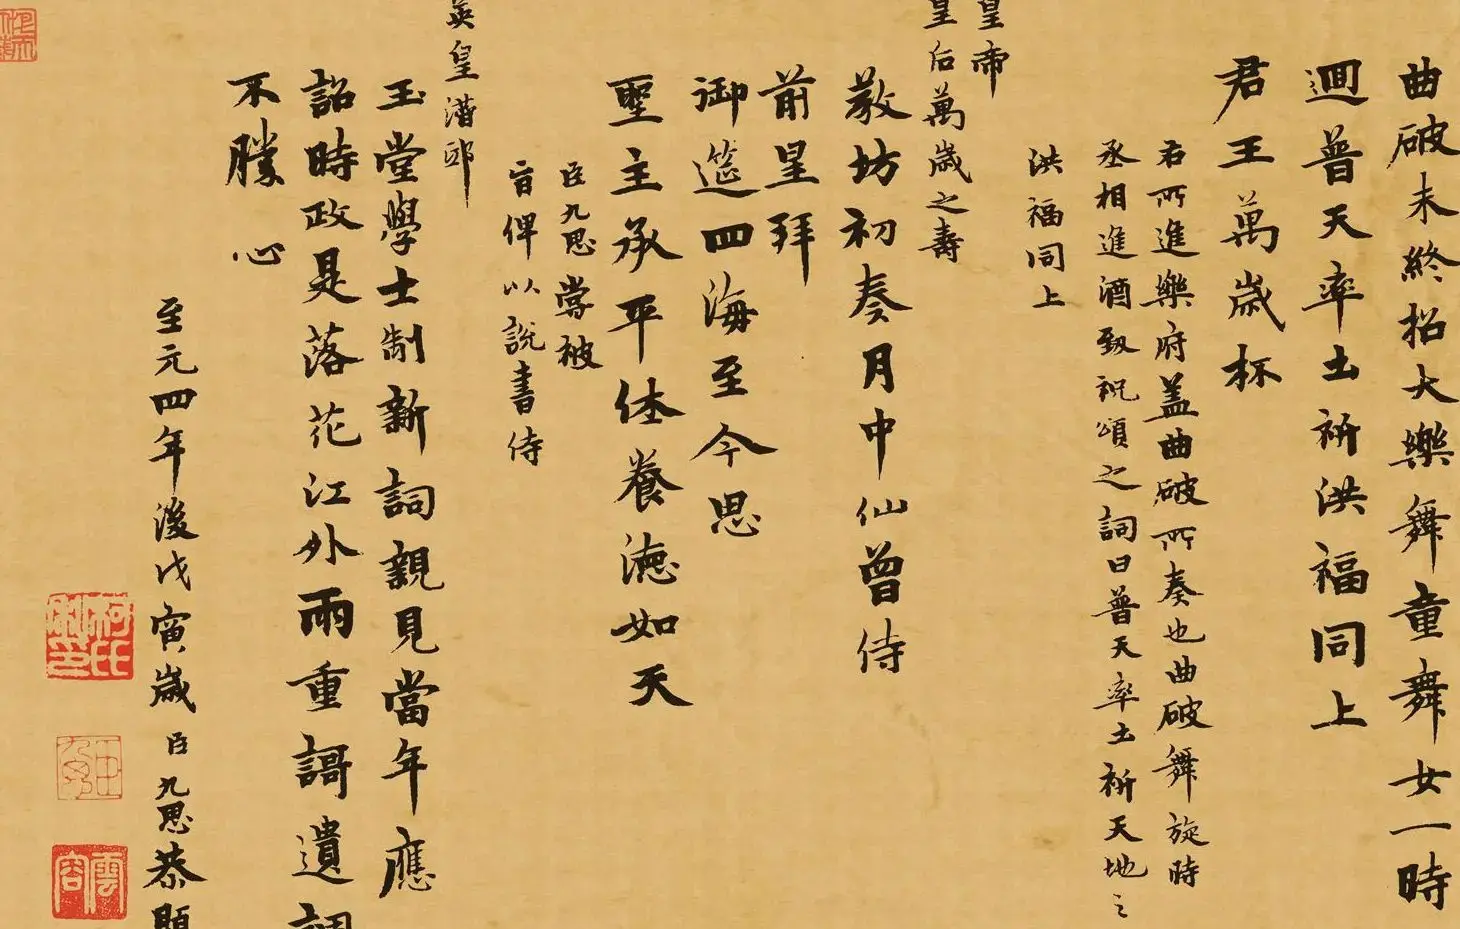 曲破未終招大樂舞童舞女一時
迴普天率土祈洪福同上
君王萬歲杯
右所進樂府蓋曲破所奏也曲破舞旋時
丞相進酒致祝頌之詞曰普天率土祈天地之
洪福同上
皇帝
皇后萬歲之壽
教坊初奏月中仙曾侍
前星拜
御筵四海至今思
聖主承平休養德如天
臣九思嘗被
旨俾以說書侍
英皇潛邸
玉堂學士制新詞親見當年應
詔時政是落花江外雨重謌遺調
不勝心
至元四年後戊寅歲臣九思恭題
柯氏敬仲
雲容